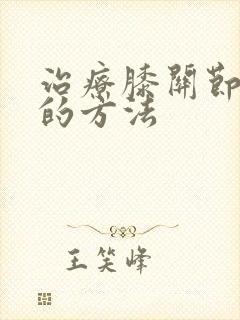 治療膝關節
的方法
王笑峰